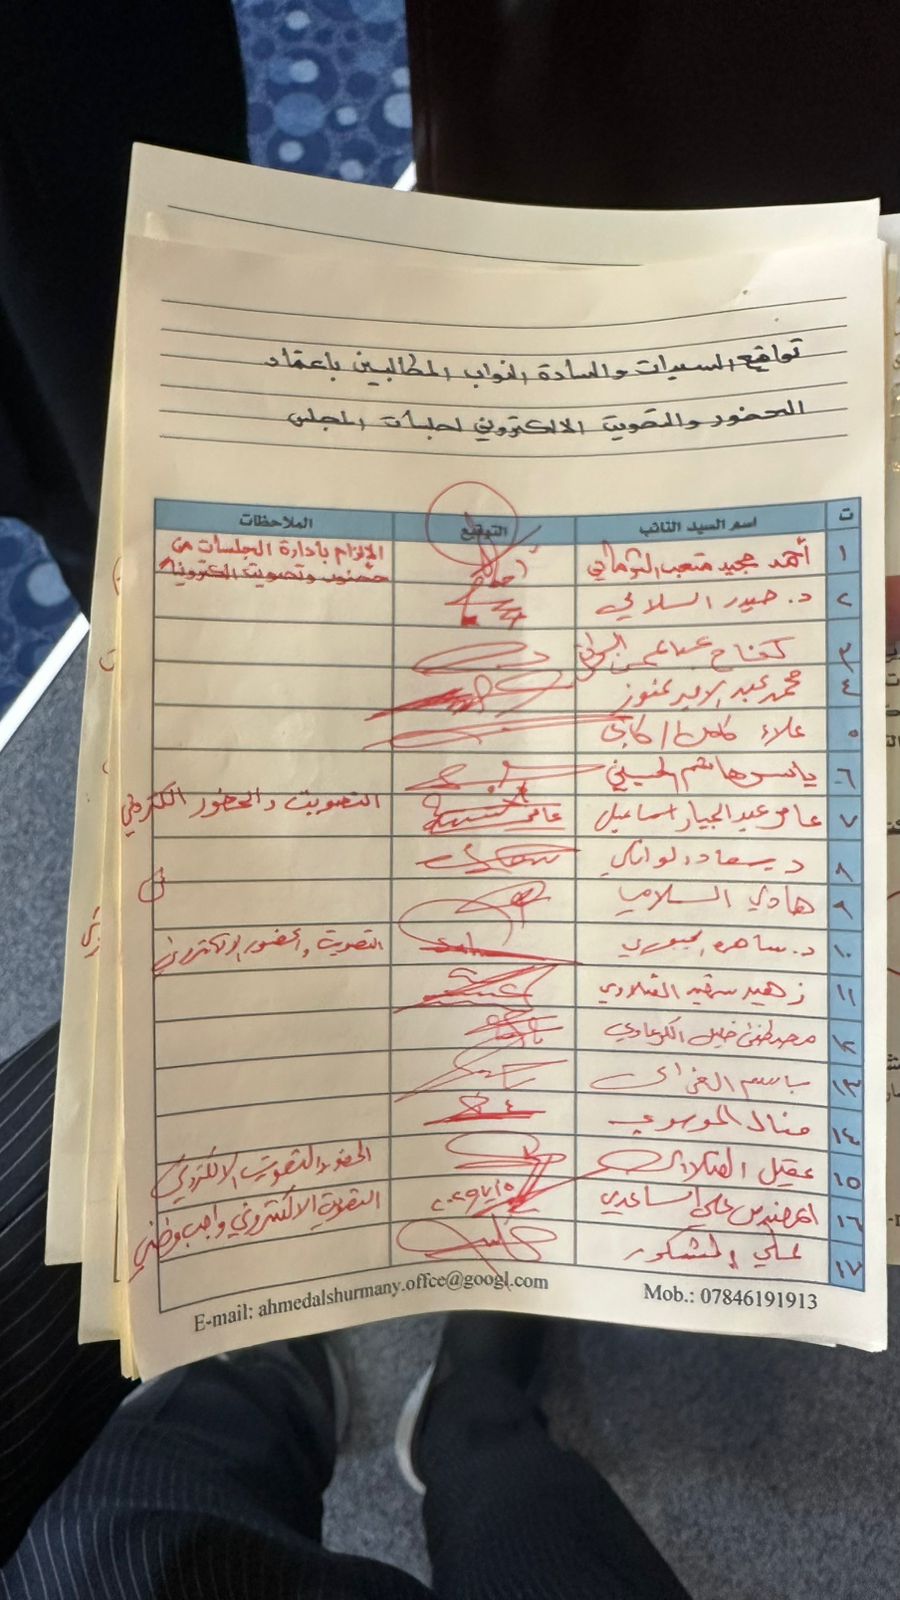 تواقيع السيدات والسادة النواب المطالبين باعتماد
الحضور والتصويت الالكتروني لجلسات المجلس
ت اسم السيد النائب التوقيع الملاحظات
١ أحمد مجيد متعب الشرماني الإلزام بأدارة الجلسات من
حضور وتصويت الكترونياً
٢ د. حيدر السلامي
٣ كفاح
٤ محمد عبد الامير عنوز
٥ علاء
٦ ياسر هاشم الحسيني
٧ عامر عبد الجبار اسماعيل عامر التصويت والحضور الكتروني
٨ د. سعاد الوائلي
٩ هادي السلامي
١٠ د. ساهرة الجبوري التصويت والحضور الالكتروني
١١ زهير شهيد الفتلاوي
١٢ مصطفى خليل الكرعاوي
١٣ باسم الغزالي
١٤ منال الموسوي
١٥ عقيل الفتلاوي الحضور والتصويت الالكتروني
١٦ المهندس علي الساعدي التصويت الالكتروني واجب وطني
١٧ علي المشكور
E-mail: ahmedalshurmany.offce@googl.com Mob.: 07846191913